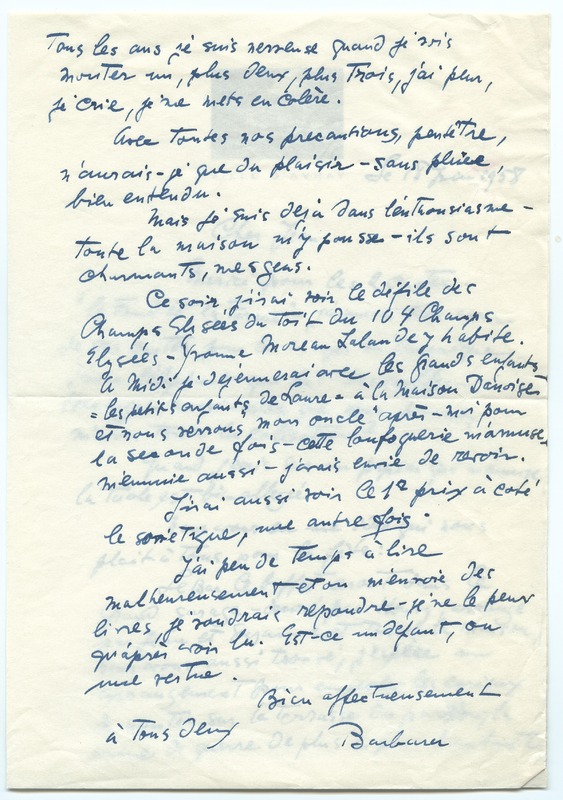 Tous les ans je suis nerveuse quand je vois
monter un, plus deux, plus trois, j'ai peur,
je crie, je me mets en colère.
Avec toutes nos precautions, peut être,
n'aurais-je que du plaisir - sans pluie,
bien entendu.
Mais je suis dejà dans l'enthousiasme -
toute la maison m'y pousse - ils sont
charmants, mes gens.
Ce soir j'irai voir le défilé des
Champs Elysées du toit du 104 Champs
Elysées - Yvonne Moreau Lalande y habite.
à Midi je déjeunerai avec les grands enfants
= les petits enfants de Laure = à la Maison Danoise
et nous verrons "mon oncle" après-midi pour
la seconde fois - cette loufoquerie m'amuse
m'ennuie aussi - j'avais envie de revoir.
J'irai aussi voir le 1er prix à coté
le sovietique, une autre fois.
J'ai peu de temps à lire
malheureusement - et on m'envoie des
livres, je voudrais repondre - je ne le peux
qu'après avoir lu. Est-ce un defaut, ou
une vertu.
Bien affectueusement
à tous deux
Barbara